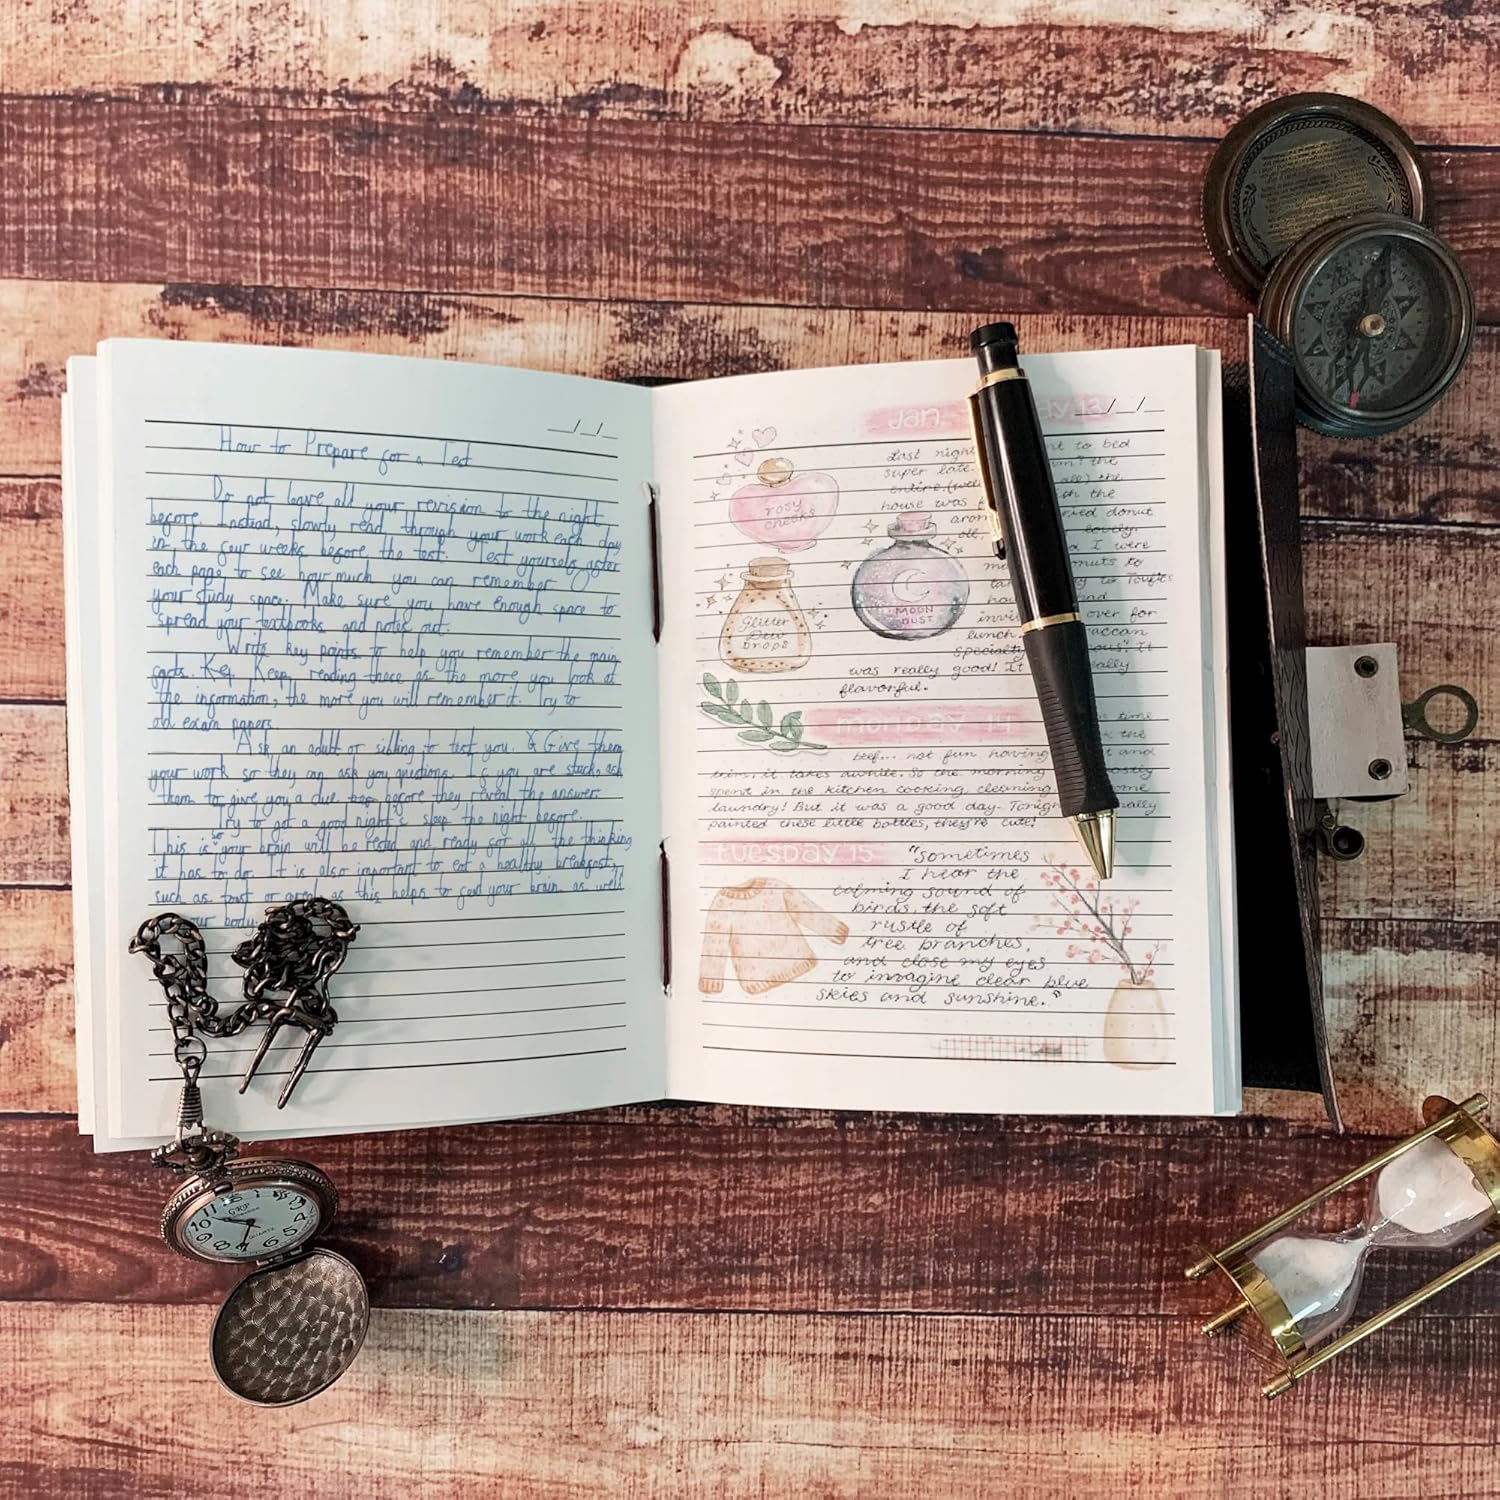 How to Prepare for a Test
Do not leave all your revision to the night
before. Instead, slowly read through your work each day
in the four weeks before the test. Test yourself after
each page to see how much you can remember
your study space. Make sure you have enough space to
spread your textbooks and notes out.
Write key points to help you remember the main
facts. Key Keep reading these as the more you look at
the information, the more you will remember it. Try to
old exam papers
Ask an adult or sibling to test you. & Give them
your work so they can ask you questions. If you are stuck, ask
them to give you a clue before they reveal the answer.
Try to get a good night's sleep the night before.
so
This is your brain will be rested and ready for all the thinking
it has to do. It is also important to eat a healthy breakfast,
such as toast or cereal as this helps to feed your brain as well
your body.
Jan. 13
last night to bed
super late. the
entire all) the
house was with the
fried donut
lovely
I were
nuts to
to
had
over for
lunch.
specialty It
was really good! It really
flavorful.
rosy
cheeks
MOON
DUST
Glitter
Dew
Drops
monday 14
time
the
beef... not fun having and
trim, it takes awhile. So the morning mostly
spent in the kitchen cooking, cleaning some
laundry! But it was a good day. Tonight finally
painted these little bottles, they're cute!
tuesday 15
"Sometimes
I hear the
calming sound of
birds, the soft
rustle of
tree branches,
and close my eyes
to imagine clear blue
skies and sunshine."
GRP
QUARTZ
10 11 12 3 4 5 6 7 8